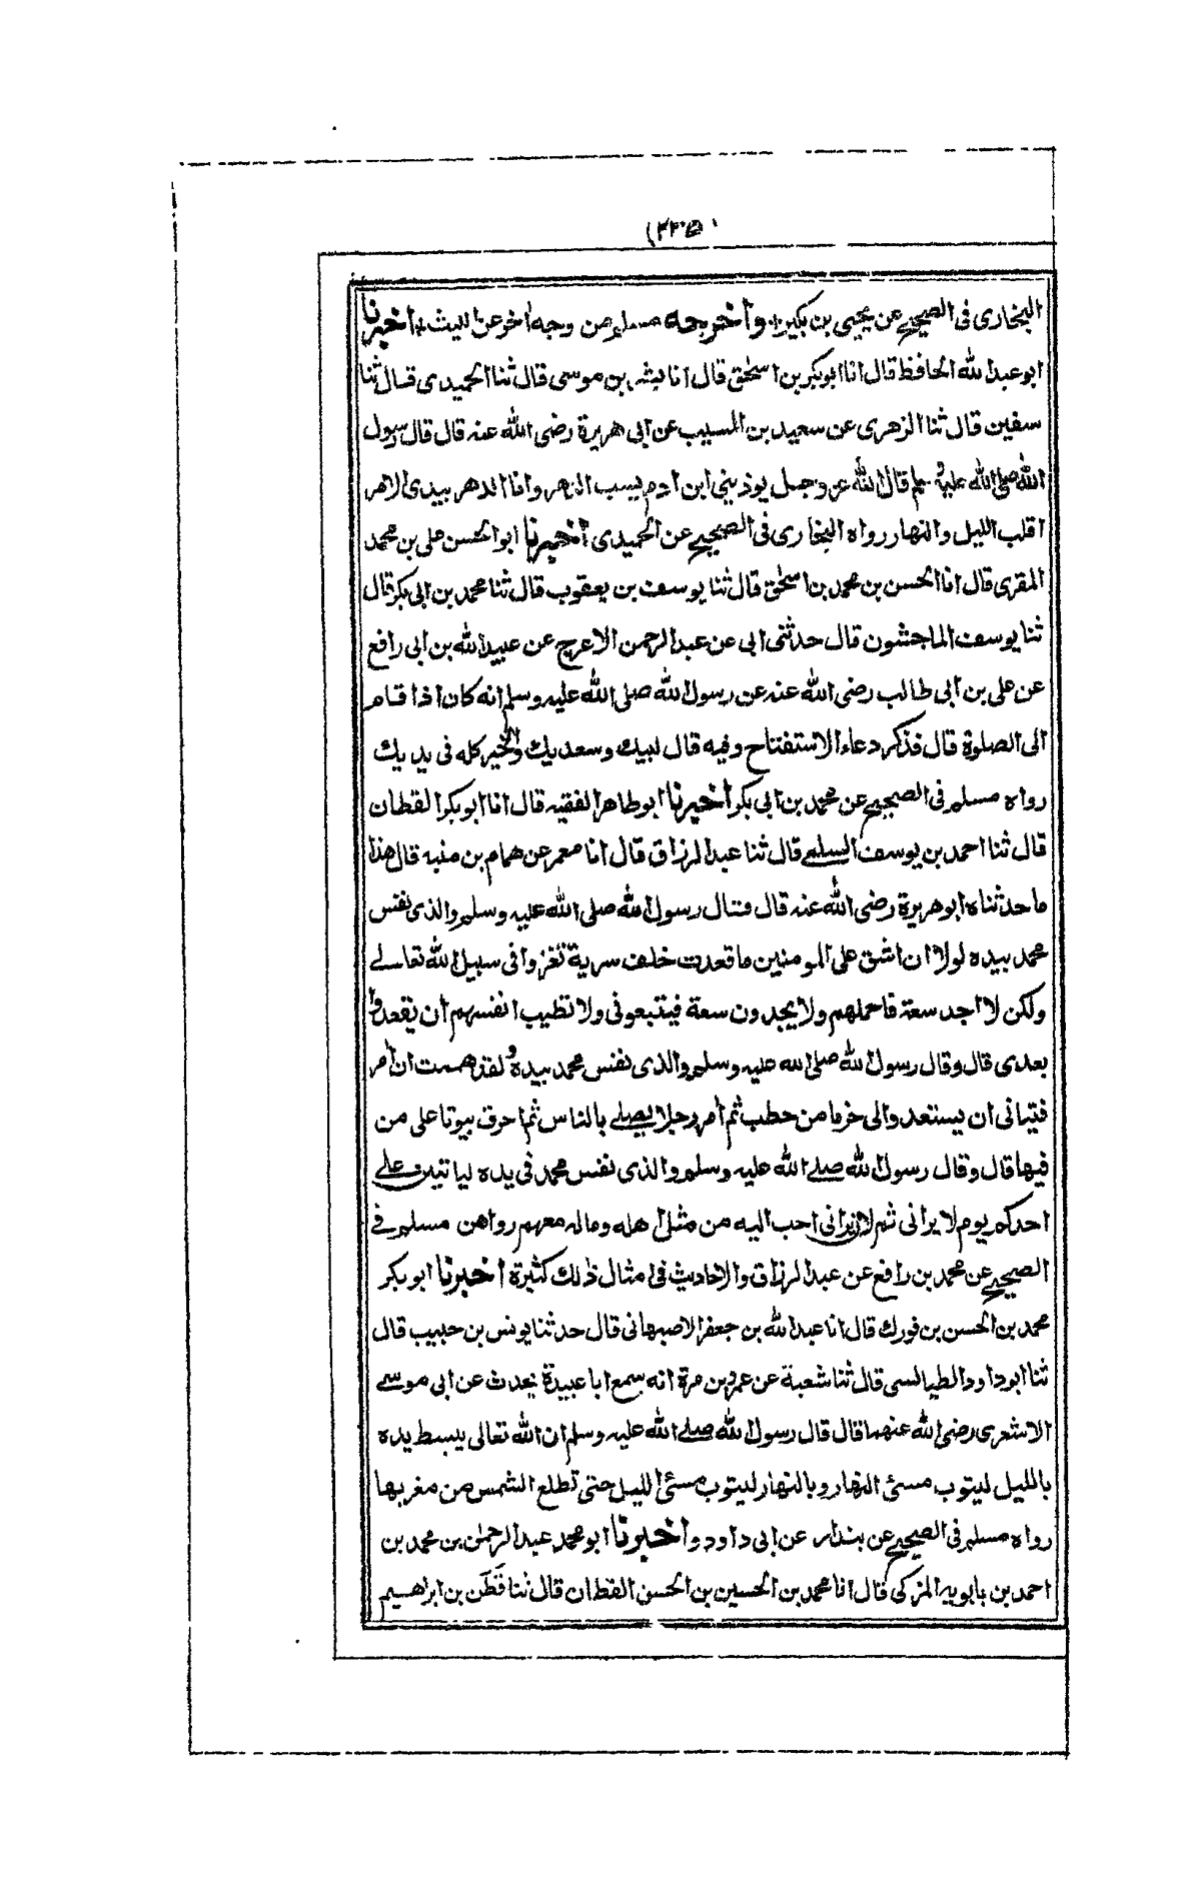 البخارى فى الصحيح عن يحيى بن بكير واخرجه مسلم من وجه اخر عن الليث اخبرنا
ابو عبد الله الحافظ قال انا ابو بكر بن اسحٰق قال انا بشر بن موسى قال ثنا الحميدى قال ثنا
سفين قال ثنا الزهرى عن سعيد بن المسيب عن ابى هريرة رضى الله عنه قال قال رسول
الله صلى الله عليه وسلم قال الله عز وجل يوذينى ابن ادم يسب الدهر وانا الدهر بيدى الامر
اقلب الليل والنهار رواه البخارى فى الصحيح عن الحميدى اخبرنا ابو الحسن على بن محمد
المقرى قال انا الحسن بن محمد بن اسحٰق قال ثنا يوسف بن يعقوب قال ثنا محمد بن ابى بكر قال
ثنا يوسف الماجشون قال حدثنى ابى عن عبد الرحمن الاعرج عن عبيد الله بن ابى رافع
عن على بن ابى طالب رضى الله عنه عن رسول الله صلى الله عليه وسلم انه كان اذا قام
الى الصلوة قال فذكر دعاء الاستفتاح وفيه قال لبيك وسعديك والخير كله فى يديك
رواه مسلم فى الصحيح عن محمد بن ابى بكر اخبرنا ابو طاهر الفقيه قال انا ابو بكر القطان
قال ثنا احمد بن يوسف السلمے قال ثنا عبد الرزاق قال انا معمر عن همام بن منبه قال هذا
ما حدثناه ابو هريرة رضى الله عنه قال قال رسول الله صلى الله عليه وسلم والذى نفس
محمد بيده لولا ان اشق على المومنين ما قعدت خلف سرية تغزوا فى سبيل الله تعالے
ولكن لا اجد سعة فاحملهم ولا يجدون سعة فيتبعونى ولا تطيب انفسهم ان يقعدوا
بعدى قال وقال رسول الله صلى الله عليه وسلم والذى نفس محمد بيده لقد هممت ان أمر
فتيانى ان يستعدوا لى حزما من حطب ثم أمر رجلا يصلے بالناس ثم احرق بيوتا على من
فيها قال وقال رسول الله صلے الله عليه وسلم والذى نفس محمد فى يده لياتين علے
احدكم يوم لا يرانى ثم لان يرانى احب اليه من مثل اهله وماله معهم رواهن مسلم فے
الصحيح عن محمد بن رافع عن عبد الرزاق والاحاديث فى امثال ذلك كثيرة اخبرنا ابو بكر
محمد بن الحسن بن فورك قال انا عبد الله بن جعفر الاصبهانى قال حدثنا يونس بن حبيب قال
ثنا ابو داود الطيالسى قال ثنا شعبة عن عمرو بن مرة انه سمع ابا عبيدة يحدث عن ابى موسے
الاشعرى رضى الله عنهما قال قال رسول الله صلے الله عليه وسلم ان الله تعالى يبسط يده
بالليل ليتوب مسئ النهار وبالنهار ليتوب مسئ الليل حتى تطلع الشمس من مغربها
رواه مسلم فى الصحيح عن بندار عن ابى داود واخبرنا ابو محمد عبد الرحمٰن بن محمد بن
احمد بن بابويه المزكى قال انا محمد بن الحسين بن الحسن القطان قال ثنا قَطَن بن ابراهيم